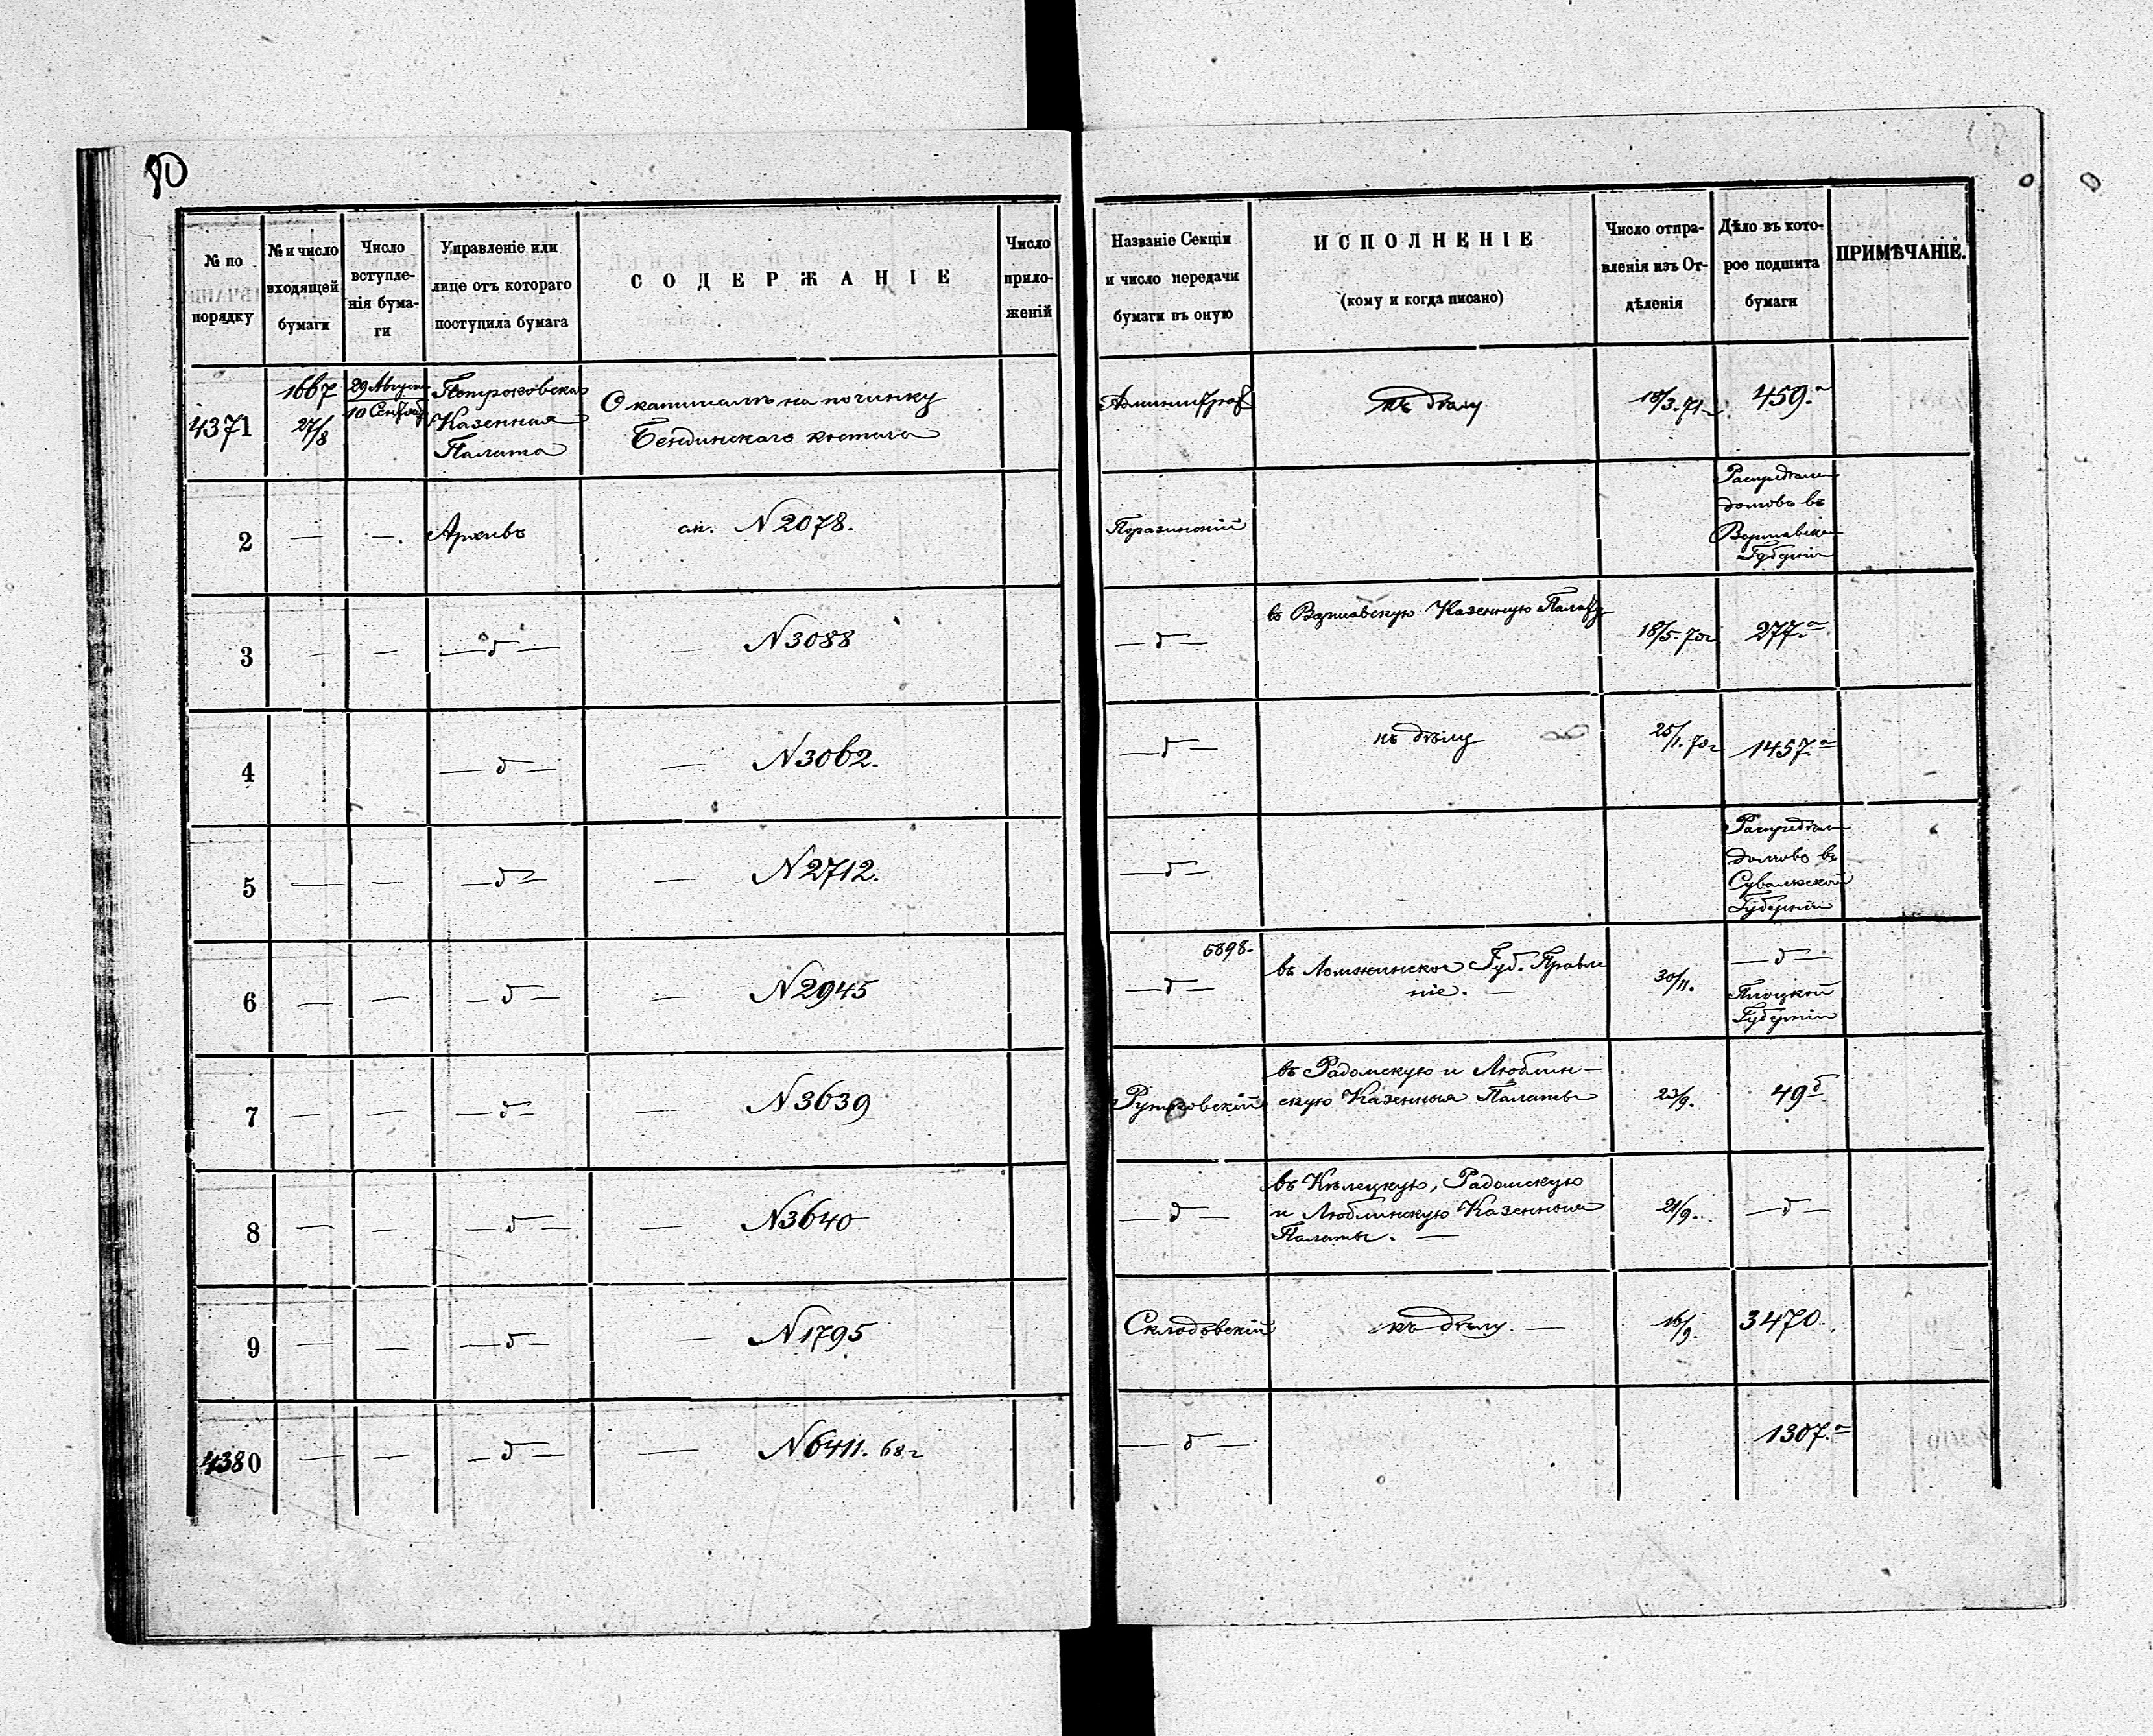 80
№ по порядку
№ и число входящей бумаги
Число вступле-нія бума-ги
Управленіе или лице отъ котораго поступила бумага
СОДЕРЖАНІЕ
Число прило-женій
Названіе Секціи и число передачи бумаги въ оную
ИСПОЛНЕНІЕ
(кому и когда писано)
Число отпра-вленія изъ От-дѣленія
Дѣло въ кото-рое подшита бумаги
ПРИМѢЧАНІЕ.
4371 1667 27/8 29 Августа 10 Сентяб Петроковская Казенная Палата О капиталѣ на починку Бендинскаго костела къ дѣлу 18/3.71г 459.а
2 — — Архивъ ст. N 2078. Поразинскій Распредѣле домовъ въ Варшавской Губерніи
3 — — — д — — N 3088 — д — въ Варшавскую Казенную Палату 18/5-70г 277.а
4 — д — — N 3062. — д — къ дѣлу 25/1.70г 1457.а
5 — — — д — — N 2712. — д — Распредѣлен домовъ въ Сувалкской Губерніи
6 — — — д — — N 2945 5898- — д — въ Ломжинское Губ. Правле ніе. — 30/11. — д — Плоцкой Губерніи
7 — — — д — — N 3639 Рутковскій въ Радомскую и Люблин- скую Казенныя Палаты 23/9. 49б
8 — — — д — — N 3640 — д — въ Кѣлецкую, Радомскую и Люблинскую Казенныя Палаты. — 21/9. — д —
9 — — — д — — N 1795 Склодовскій къ дѣлу. — 16/9. 3470.
4380 — — — д — — N 6411. 68г — д — 1307.а